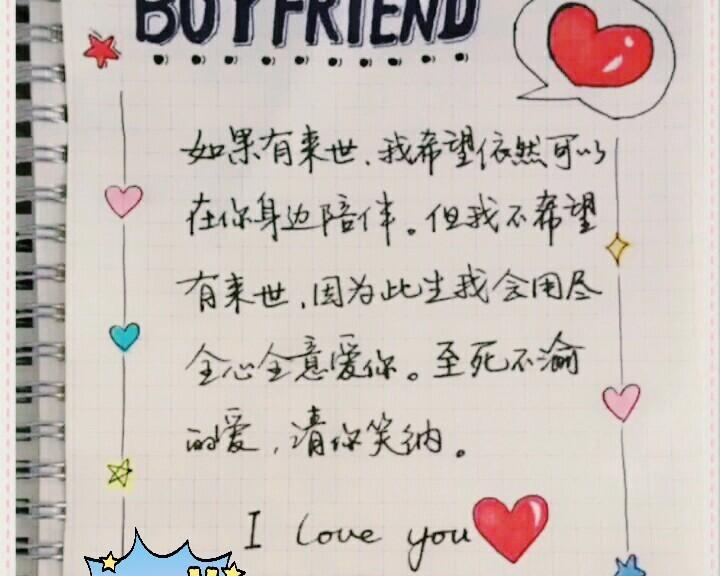 BOYFRIEND
如果有来世，我希望依然可以
在你身边陪伴。但我不希望
有来世，因为此生我会用尽
全心全意爱你。至死不渝
的爱，请你笑纳。
I love you